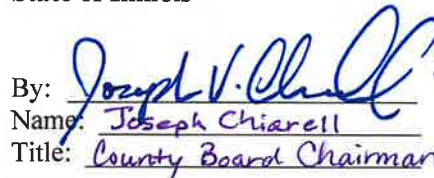 State of Illinois
By: Joseph V.
Name: Joseph Chiarell
Title: County Board Chairman